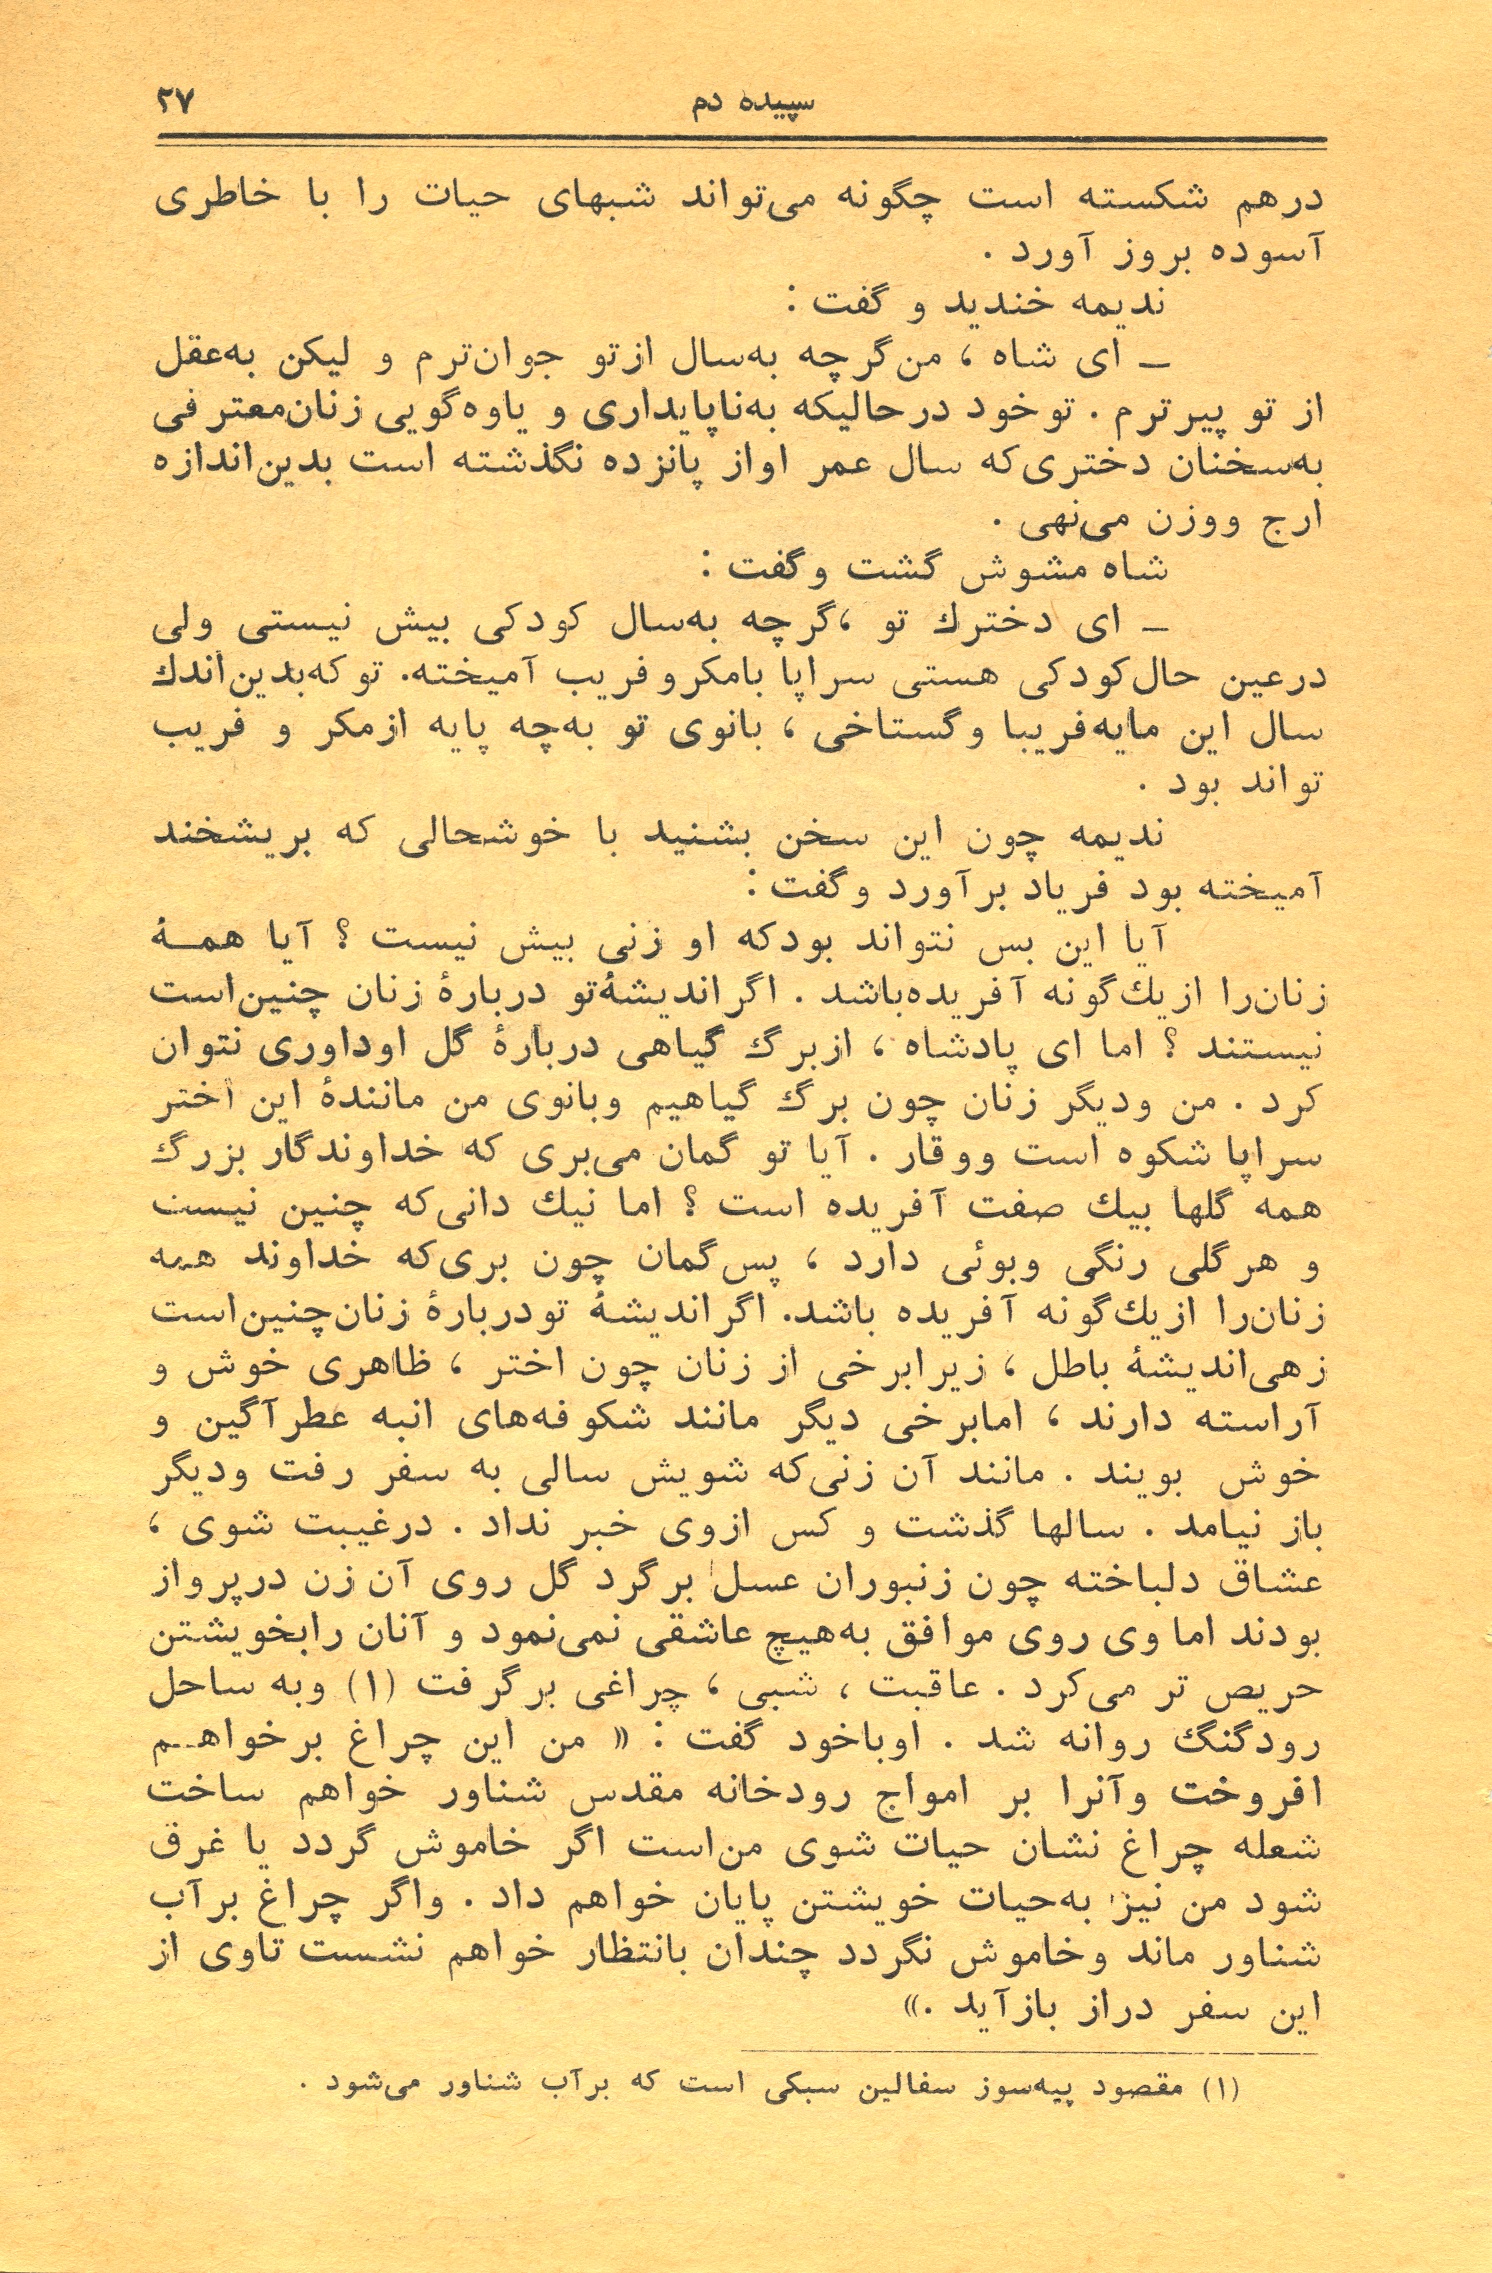 سپیده دم ۲۷
درهم شکسته است چگونه می‌تواند شبهای حیات را با خاطری
آسوده بروز آورد .
ندیمه خندید و گفت :
ــ ای شاه ، من‌گرچه به‌سال ازتو جوان‌ترم و لیکن به‌عقل
از تو پیرترم . توخود درحالیکه به‌ناپایداری و یاوه‌گویی زنان‌معترفی
به‌سخنان دختری‌که سال عمر اواز پانزده نگذشته است بدین‌اندازه
ارج ووزن می‌نهی .
شاه مشوش گشت وگفت :
ــ ای دخترك تو ،گرچه به‌سال کودکی بیش نیستی ولی
درعین حال‌کودکی هستی سراپا بامکروفریب آمیخته. توکه‌بدین‌اندك
سال این مایه‌فریبا وگستاخی ، بانوی تو به‌چه پایه ازمکر و فریب
تواند بود .
ندیمه چون این سخن بشنید با خوشحالی که بریشخند
آمیخته بود فریاد برآورد وگفت :
آیا این بس نتواند بودکه او زنی بیش نیست ؟ آیا همــهٔ
زنان‌را ازیك‌گونه آفریده‌باشد . اگراندیشهٔ‌تو دربارهٔ زنان چنین‌است
نیستند ؟ اما ای پادشاه ، ازبرگ گیاهی دربارهٔ گل اوداوری نتوان
کرد . من ودیگر زنان چون برگ گیاهیم وبانوی من مانندهٔ این اختر
سراپاشکوه است ووقار . آیا تو گمان می‌بری که خداوندگار بزرگ
همه گلها بیك صفت آفریده است ؟ اما نیك دانی‌که چنین نیست
و هرگلی رنگی وبوئی دارد ، پس‌گمان چون بری‌که خداوند همه
زنان‌را ازیك‌گونه آفریده باشد. اگراندیشهٔ تودربارهٔ زنان‌چنین‌است
زهی‌اندیشهٔ باطل ، زیرابرخی از زنان چون اختر ، ظاهری خوش و
آراسته دارند ، امابرخی دیگر مانند شکوفه‌های انبه عطرآگین و
خوش بویند . مانند آن زنی‌که شویش سالی به سفر رفت ودیگر
باز نیامد . سالها گذشت و کس ازوی خبر نداد . درغیبت شوی ،
عشاق دلباخته چون زنبوران عسل برگرد گل روی آن زن درپرواز
بودند اما وی روی موافق به‌هیچ عاشقی نمی‌نمود و آنان رابخویشتن
حریص تر می‌کرد . عاقبت ، شبی ، چراغی برگرفت (۱) وبه ساحل
رودگنگ روانه شد . اوباخود گفت : « من این چراغ برخواهــم
افروخت وآنرا بر امواج رودخانه مقدس شناور خواهم ساخت
شعله چراغ نشان حیات شوی من‌است اگر خاموش گردد یا غرق
شود من نیز به‌حیات خویشتن پایان خواهم داد . واگر چراغ برآب
شناور ماند وخاموش نگردد چندان بانتظار خواهم نشست تاوی از
این سفر دراز بازآید .»
(۱) مقصود پیه‌سوز سفالین سبکی است که برآب شناور می‌شود .